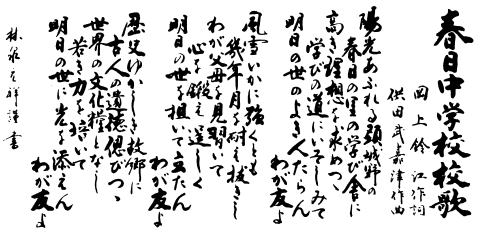 春日中学校校歌
岡上鈴江作詞
供田武嘉津作曲
陽光あふれる頸城野の
春日の里の学び舎に
高き理想を求めつゝ
学びの道にいそしみて
明日の世のよき人たらん
わが友よ
風雪いかに強くとも
幾年月を耐え抜きし
わが父母を見習いて
心を鍛え逞しく
明日の世を担いて立たん
わが友よ
歴史ゆかしき故郷に
古人の道徳偲びつゝ
世界の文化糧となし
若き力を培いて
明日の世に光を添えん
わが友よ